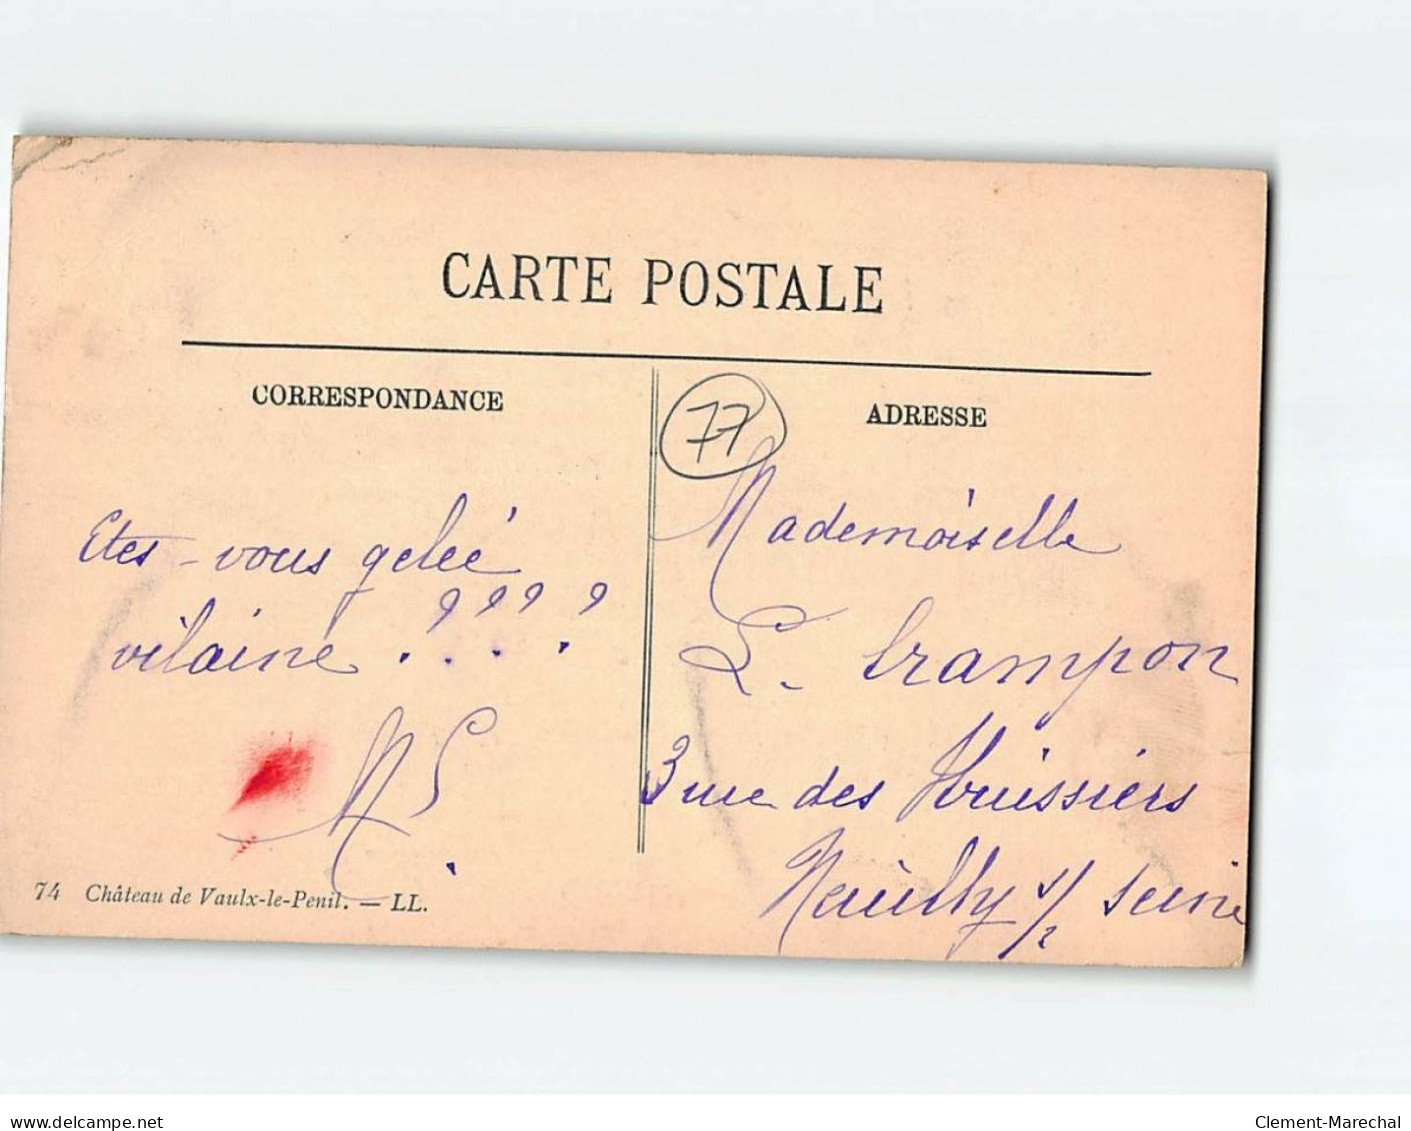 CARTE POSTALE
CORRESPONDANCE
ADRESSE
77
Etes-vous gelée
vilaine ????
Mademoiselle
L. Crampon
3 rue des Huissiers
Neuilly s/ Seine
74 Château de Vaulx-le-Penil. — LL.
www.delcampe.net
Clement-Marechal